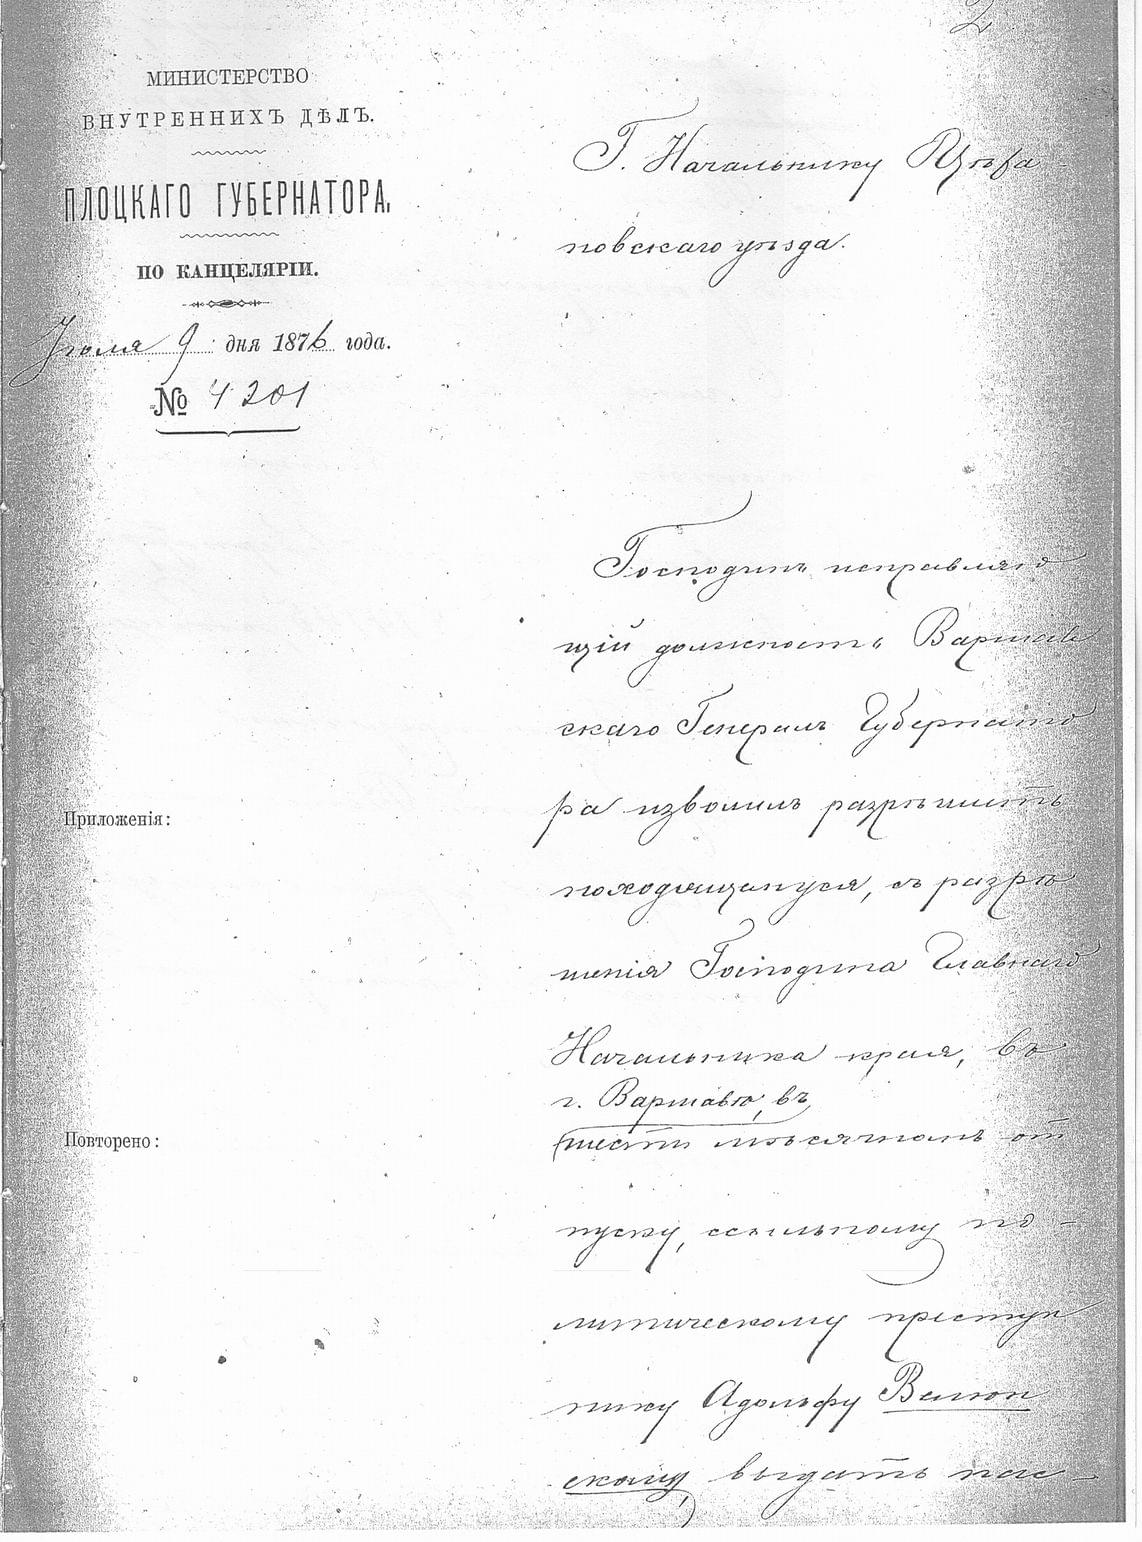 2
МИНИСТЕРСТВО
ВНУТРЕННИХЪ ДѢЛЪ.
ПЛОЦКАГО ГУБЕРНАТОРА,
ПО КАНЦЕЛЯРІИ.
Іюля 9 дня 1876 года.
№ 4201
Г. Начальнику Цѣха-
новскаго уѣзда.
Господинъ исправляю
щій должность Варшав
скаго Генералъ Губернато
ра изволилъ разрѣшить
находящемуся, съ разрѣ
шенія Господина Главнаго
Начальника края, въ
г. Варшавѣ, въ
шести мѣсячномъ от
пуску, ссыльному по-
литическому преступ
нику Адольфу Велюн
скому, выдать пас-
Приложенія:
Повторено: